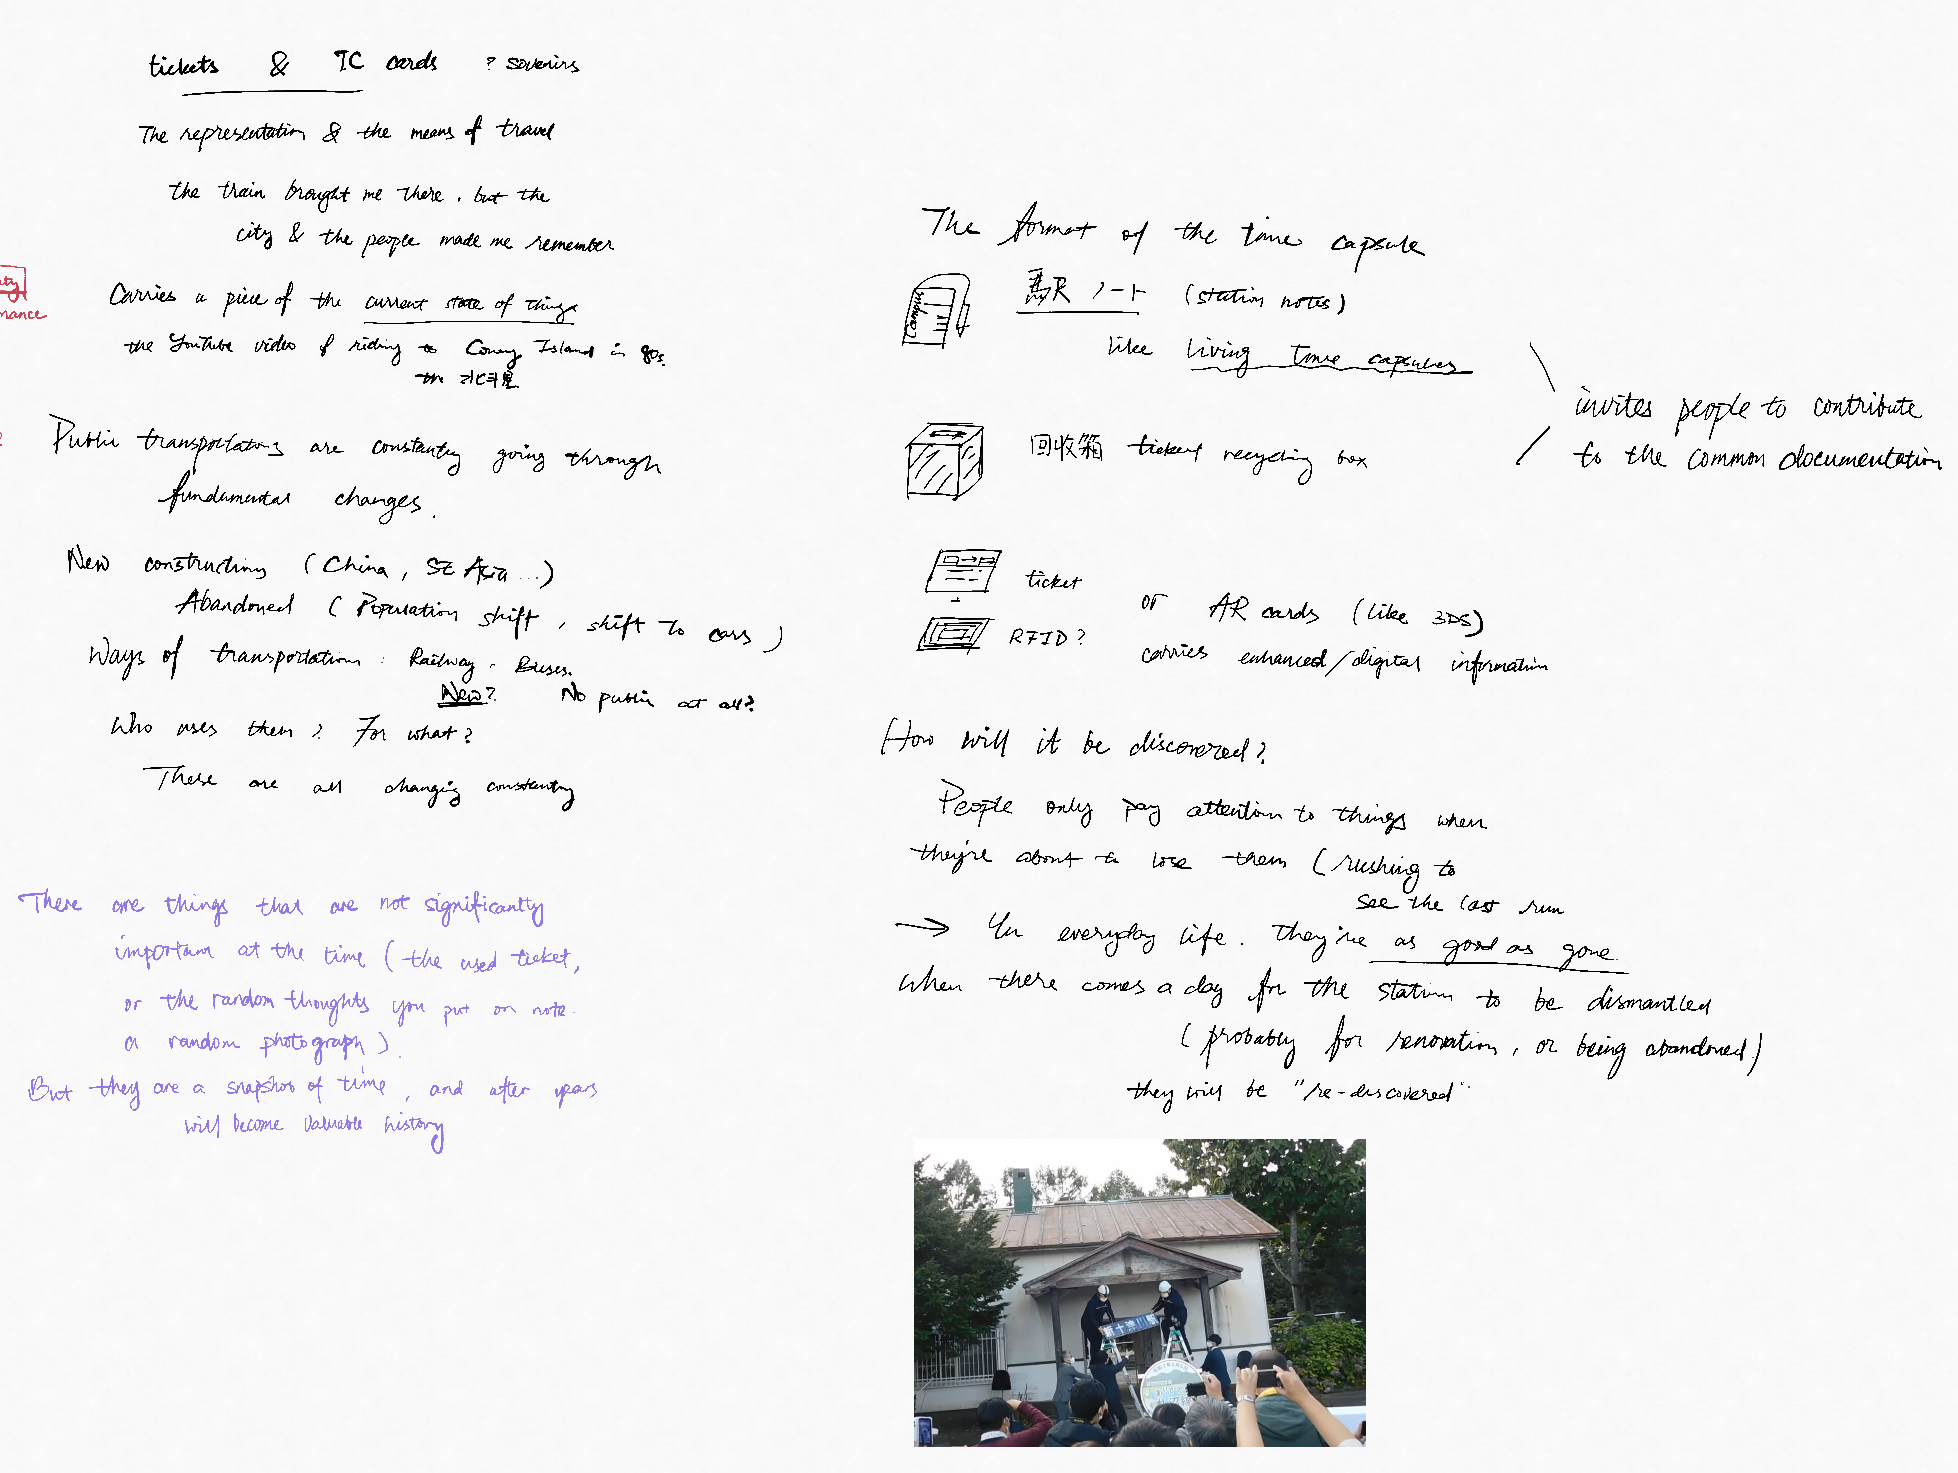 tickets & IC cards ? sovenirs
The representation & the means of travel
the train brought me there. but the
city & the people made me remember
Carries a piece of the current state of things
the YouTube video of riding to Coney Island in 80s.
the 北斗星
Public transportations are constantly going through
fundamental changes.
New constructions (China, SE Asia ...)
Abandoned (Population shift, shift to cars)
Ways of transportation: Railway. Buses.
New? No public at all?
Who uses them? For what?
These are all changing constantly
There are things that are not significantly
important at the time (the used ticket,
or the random thoughts you put on note.
a random photograph).
But they are a snapshot of time, and after years
will become valuable history
The format of the time capsule
Campus
駅ノート (station notes)
like living time capsules
回收箱 ticket recycling box
invites people to contribute
to the common documentation
ticket
RFID?
or AR cards (like 3DS)
carries enhanced/digital information
How will it be discovered?
People only pay attention to things when
they're about to lose them (rushing to
see the last run
→ In everyday life. They're as good as gone
when there comes a day for the station to be dismantled
(probably for renovation, or being abandoned)
they will be "re-discovered"
新十津川駅